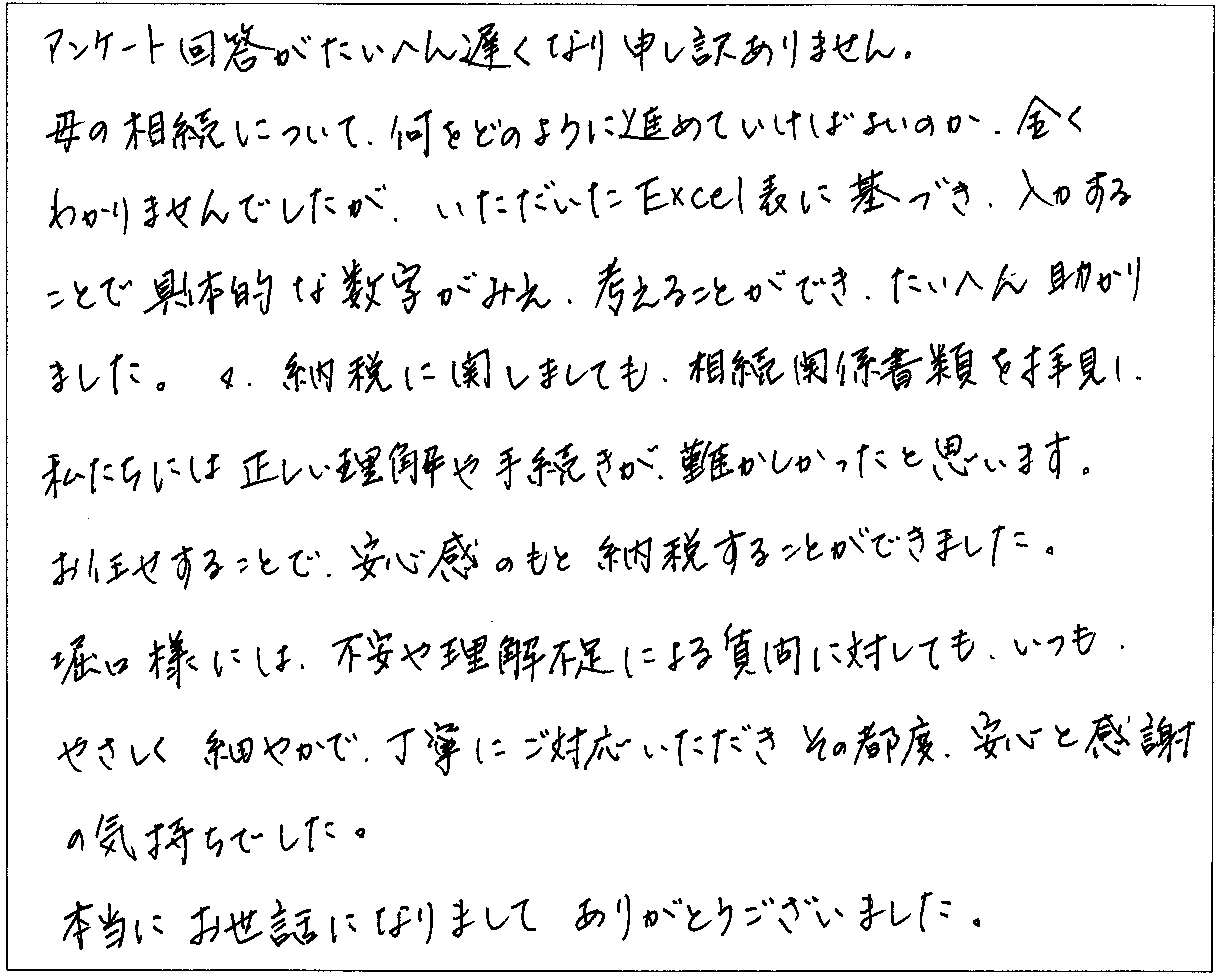 アンケート回答がたいへん遅くなり申し訳ありません。
母の相続について、何をどのように進めていけばよいのか、全く
わかりませんでしたが、いただいたExcel表に基づき、入力する
ことで具体的な数字がみえ、考えることができ、たいへん助かり
ました。又、納税に関しましても、相続関係書類を拝見し、
私たちには正しい理解や手続きが、難かしかったと思います。
お任せすることで、安心感のもと納税することができました。
堀口様には、不安や理解不足による質問に対しても、いつも、
やさしく細やかで、丁寧にご対応いただきその都度、安心と感謝
の気持ちでした。
本当にお世話になりまして ありがとうございました。